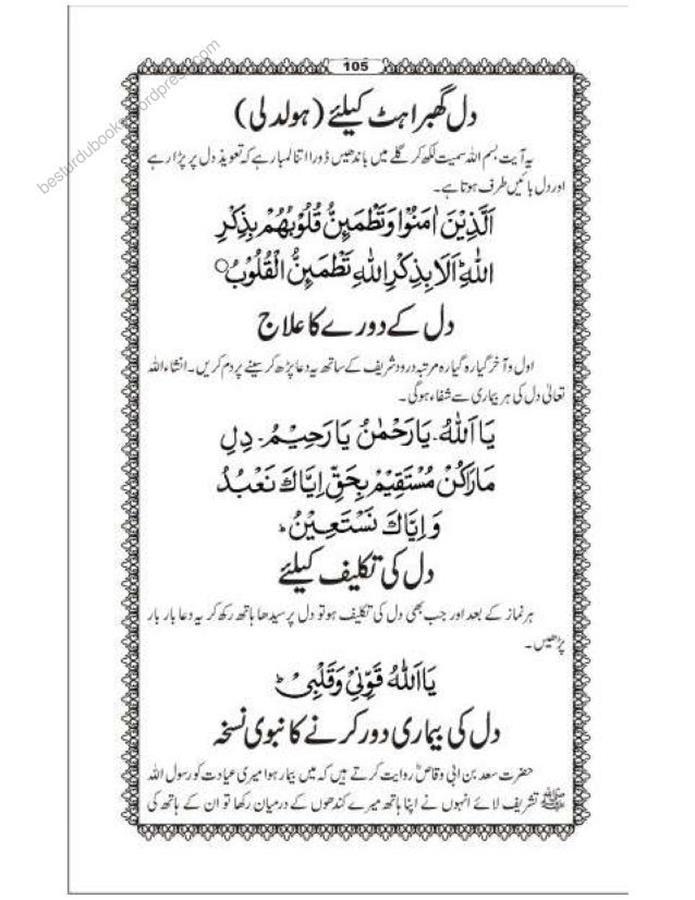 105
besturdubooks.wordpress.com
دل گھبراہٹ کیلئے (ہولدلی)
یہ آیت بسم اللہ سمیت لکھ کر گلے میں باندھیں ڈورا اتنا لمبا رہے کہ تعویذ دل پر پڑا رہے
اور دل بائیں طرف ہوتا ہے۔
اَلَّذِيْنَ اٰمَنُوْا وَتَطْمَئِنُّ قُلُوْبُهُمْ بِذِكْرِ
اللّٰهِ ؕ اَلَا بِذِكْرِ اللّٰهِ تَطْمَئِنُّ الْقُلُوْبُ ○
دل کے دورے کا علاج
اول و آخر گیارہ گیارہ مرتبہ درود شریف کے ساتھ یہ دعا پڑھ کر سینے پر دم کریں۔ انشاء اللہ
تعالیٰ دل کی ہر بیماری سے شفاء ہوگی۔
يَا اَللّٰهُ۔ يَا رَحْمٰنُ يَا رَحِيْمُ۔ دِلِ
مَارَاكُنْ مُسْتَقِيْمْ بِحَقِّ اِيَّاكَ نَعْبُدُ
وَ اِيَّاكَ نَسْتَعِيْنُ ؕ
دل کی تکلیف کیلئے
ہر نماز کے بعد اور جب بھی دل کی تکلیف ہو تو دل پر سیدھا ہاتھ رکھ کر یہ دعا بار بار
پڑھیں۔
يَا اَللّٰهُ قَوِّنِيْ وَقَلْبِيْ ؕ
دل کی بیماری دور کرنے کا نبوی نسخہ
حضرت سعد بن ابی وقاصؓ روایت کرتے ہیں کہ میں بیمار ہوا میری عیادت کو رسول اللہ
ﷺ تشریف لائے انہوں نے اپنا ہاتھ میرے کندھوں کے درمیان رکھا تو ان کے ہاتھ کی